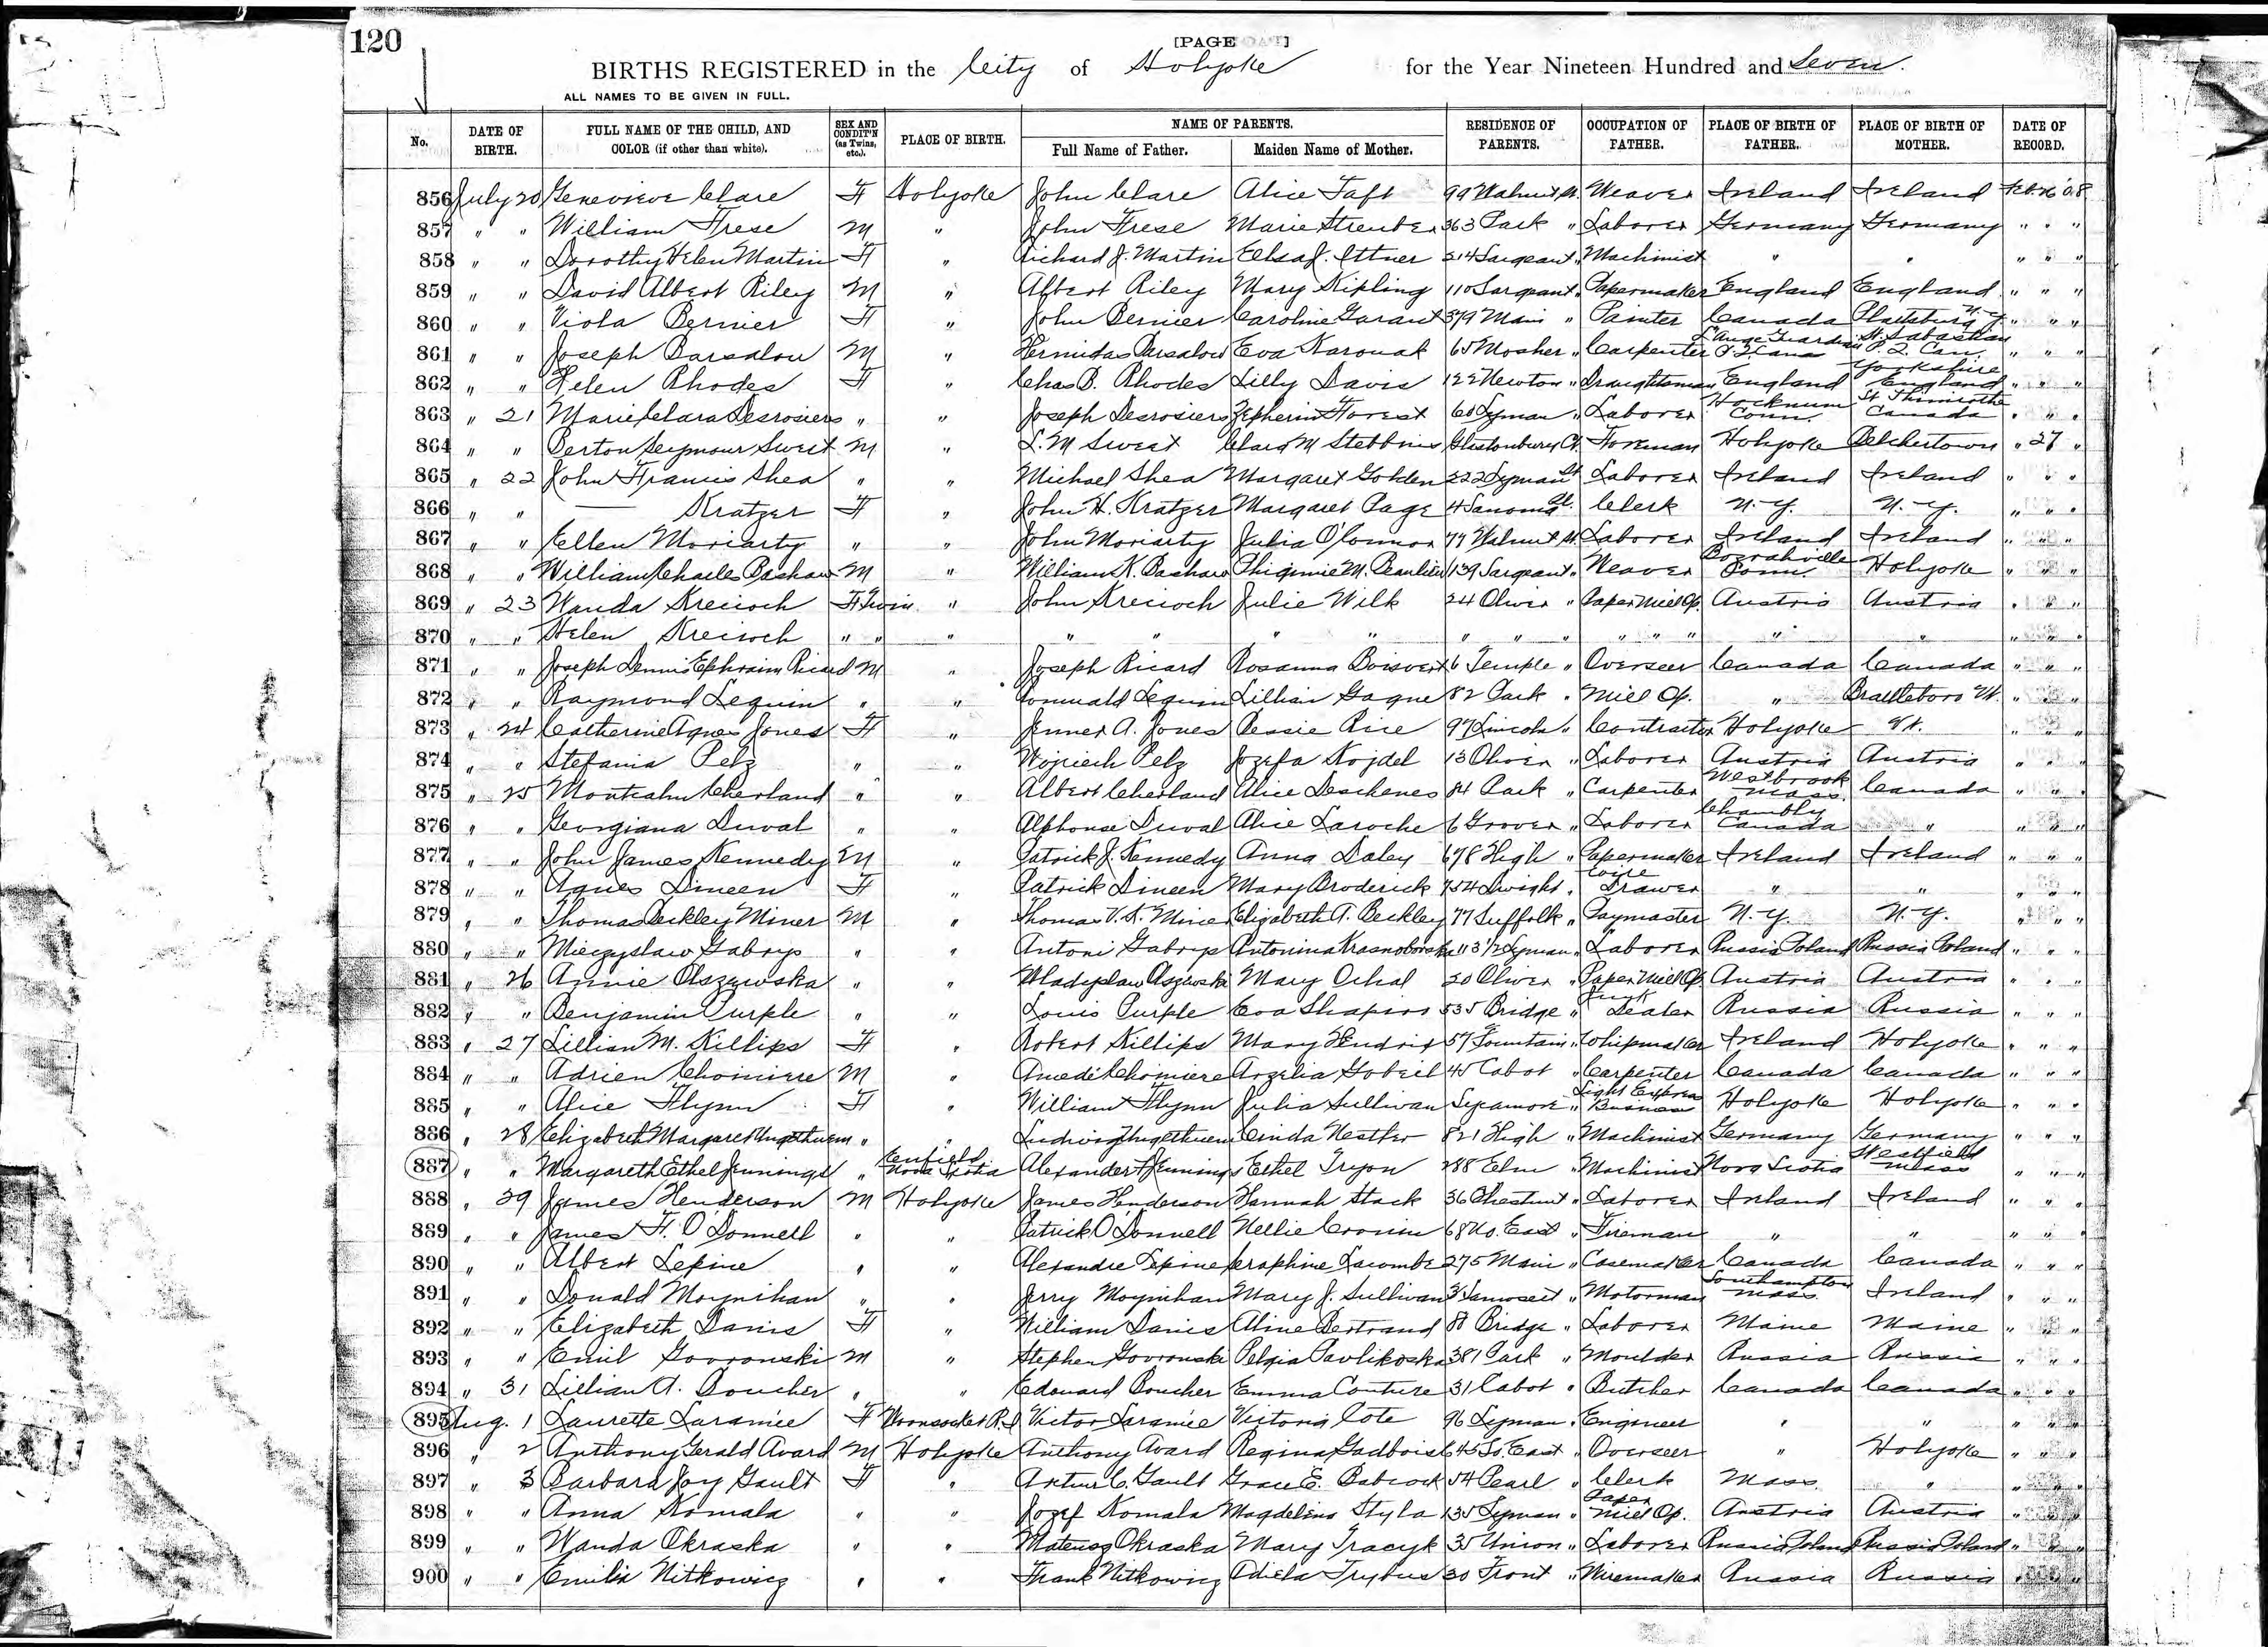 120
[PAGE]
BIRTHS REGISTERED in the City of Holyoke for the Year Nineteen Hundred and Seven.
ALL NAMES TO BE GIVEN IN FULL.
No. DATE OF BIRTH. FULL NAME OF THE CHILD, AND COLOR (if other than white). SEX AND CONDIT'N (as Twins, etc.). PLACE OF BIRTH. NAME OF PARENTS. Full Name of Father. Maiden Name of Mother. RESIDENCE OF PARENTS. OCCUPATION OF FATHER. PLACE OF BIRTH OF FATHER. PLACE OF BIRTH OF MOTHER. DATE OF RECORD.
856 July 20 Genevieve Clare F Holyoke John Clare Alice Taft 99 Walnut St. Weaver Ireland Ireland Feb 26 08
857 " " William Frese M " John Frese Marie Streuber 363 Park " Laborer Germany Germany " " "
858 " " Dorothy Helen Martin F " Richard J. Martin Elsa J. Ittner 214 Sargeant " Machinist " " " " "
859 " " David Albert Riley M " Albert Riley Mary Kipling 110 Sargeant " Papermaker England England " " "
860 " " Viola Bernier F " John Bernier Caroline Garant 379 Main " Painter Canada Plattsburg N.Y. " " "
861 " " Joseph Barsalou M " Hermidas Barsalou Eva 65 Mosher " Carpenter L'Ange Gardien P.Q. Can. " " "
862 " " Helen Rhodes F " Chas D. Rhodes Lilly Davis 122 Newton " Draughtsman England Yorkshire England " " "
863 " 21 Marie Clara Desrosiers " " Joseph Desrosiers Zepherin Forest 60 Lyman " Laborer Hocknum Conn. Canada " " "
864 " " Berton Seymour Sweet M " L. M Sweet Clara M Stebbins Glastonbury Ct. Foreman Holyoke Belchertown " 27 "
865 " 22 John Francis Shea " " Michael Shea Margaret Golden 222 Lyman St Laborer Ireland Ireland " " "
866 " " — Kratzer F " John H. Kratzer Margaret Page 4 St. Clerk N.Y. N.Y. " " "
867 " " Ellen Moriarty " " John Moriarty Julia O'Connor 77 Walnut St. Laborer Ireland Ireland " " "
868 " " William Charles Bashaw M " William K. Bashaw Phigimie M. Beaulieu 139 Sargeant " Weaver Bozrahville Conn. Holyoke " " "
869 " 23 Wanda Krecioch F Twin " John Krecioch Julie Wilk 24 Oliver " Paper Mill Op. Austria Austria " " "
870 " " Helen Krecioch " " " " " " " " " " " " " " " " " " "
871 " " Joseph Dennis Ephraim Ricard M " Joseph Ricard Rosanna Boisvert 6 Temple " Overseer Canada Canada " " "
872 " " Raymond Lequin " " Romuald Lequin Lillian Gagne 82 Park " Mill Op. " Brattleboro Vt. " " "
873 " 24 Catherine Agnes Jones F " Jenner A. Jones Bessie Rice 97 Lincoln " Contractor Holyoke Vt. " " "
874 " " Stefania Pelz " " Wojciech Pelz Jozefa Kojdel 13 Oliver " Laborer Austria Austria " " "
875 " 25 Montcalm Cherland " " Albert Cherland Alice Deschenes 84 Park " Carpenter Westbrook Mass. Canada " " "
876 " " Georgiana Duval " " Alphonse Duval Alice Laroche 6 Grover " Laborer Chambly Canada " " " "
877 " " John James Kennedy M " Patrick J. Kennedy Anna Daley 678 High " Papermaker Ireland Ireland " " "
878 " " Agnes Dineen F " Patrick Dineen Mary Broderick 754 Dwight " Wire Drawer " " " " "
879 " " Thomas Beckley Miner M " Thomas V. K. Miner Elizabeth A. Beckley 77 Suffolk " Paymaster N.Y. N.Y. " " "
880 " " Mieczyslaw Gabrys " " Antoni Gabrys Antonina Krasnoborska 113 1/2 Lyman " Laborer Russia Poland Russia Poland " " "
881 " 26 Annie Olszewska " " Wladyslaw Olszewski Mary Ochal 20 Oliver " Paper Mill Op. Austria Austria " " "
882 " " Benjamin Purple " " Louis Purple Eva Shapiro 535 Bridge " Junk Dealer Russia Russia " " "
883 " 27 Lillian M. Killips F " Robert Killips Mary Hendrix 57 Fountain " Whipmaker Ireland Holyoke " " "
884 " " Adrien Chomiere M " Amedi Chomiere Arzelia Gobeil 45 Cabot " Carpenter Canada Canada " " "
885 " " Alice Flynn F " William Flynn Julia Sullivan Sycamore " Light Express Business Holyoke Holyoke " " "
886 " 28 Elizabeth Margaret " " Ludwig Linda Nestler 821 High " Machinist Germany Germany " " "
887 " " Margareth Ethel Jennings " Enfield Nova Scotia Alexander F Jennings Ethel Tryon 288 Elm " Machinist Nova Scotia Westfield Mass " " "
888 " 29 James Henderson M Holyoke James Henderson Hannah Stack 36 Chestnut " Laborer Ireland Ireland " " "
889 " " James F. O'Donnell " " Patrick O'Donnell Nellie Cronin 68 No. East " Fireman " " " " "
890 " " Albert Lepine " " Alexandre Lepine Seraphine Lacombe 275 Main " Casemaker Canada Canada " " "
891 " " Donald Moynihan " " Jerry Moynihan Mary J. Sullivan 3 Samoset " Motorman Southampton Mass. Ireland " " "
892 " " Elizabeth Danis F " William Danis Aline Bertrand 88 Bridge " Laborer Maine Maine " " "
893 " " Emil Govronski M " Stephen Govronski Pelgia Pavlikoska 381 Park " Moulder Russia Russia " " "
894 " 31 Lillian A. Boucher " " Edouard Boucher Emma Couture 31 Cabot " Butcher Canada Canada " " "
895 Aug. 1 Laurette Laramée F Woonsocket R.I. Victor Laramée Victoria Cote 96 Lyman " Engineer " " " " "
896 " 2 Anthony Gerald Avard M Holyoke Anthony Avard Regina Gadbois 645 So. East " Overseer " Holyoke " " "
897 " 3 Barbara Joy Gault F " Arthur C. Gault Grace E. Babcock 54 Pearl " Clerk Mass. " " " "
898 " " Anna Komala " " Jozef Komala Magdelina Styla 135 Lyman " Paper Mill Op. Austria Austria " " "
899 " " Wanda Okraska " " Mateusz Okraska Mary Tracyk 35 Union " Laborer Russia Poland Russia Poland " " "
900 " " Emilia Nitkowicz " " Frank Nitkowicz Odiela Trybus 30 Front " Wiremaker Russia Russia " " "